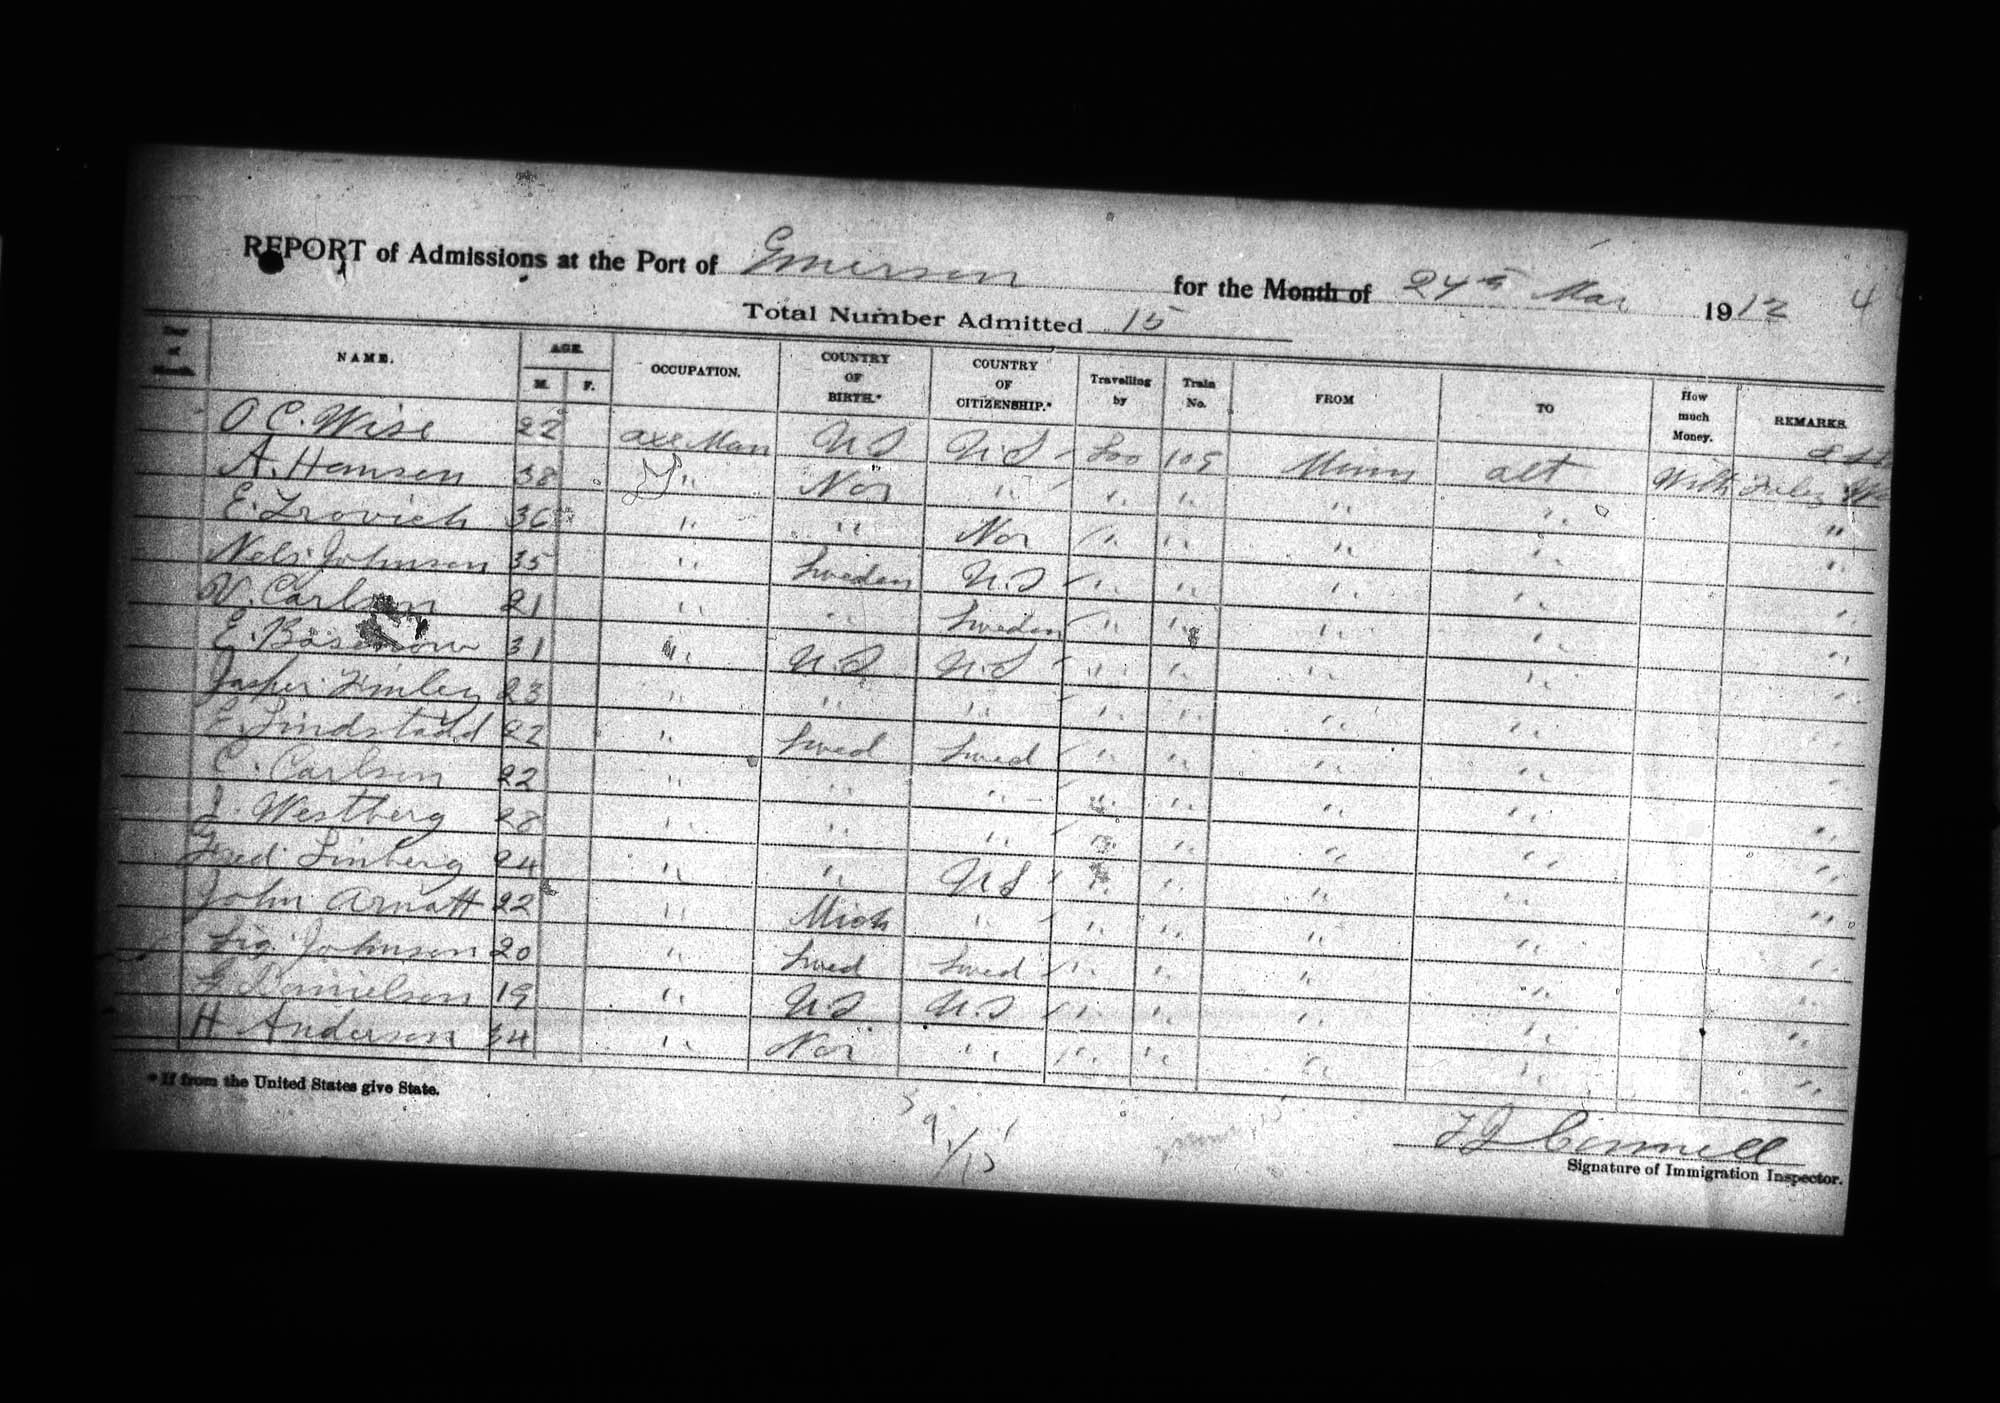 REPORT of Admissions at the Port of Emerson for the Month of 24th Mar 1912 4
Total Number Admitted 15
Day of Month NAME. AGE. M. F. OCCUPATION. COUNTRY OF BIRTH.* COUNTRY OF CITIZENSHIP.* Travelling by Train No. FROM TO How much Money. REMARKS.
O C. Wise 22 axe Man U S U.S Soo 109 Minn alt With
A. Hansen 38 " Nor " " " " " "
E. Trovich 36 " " Nor " " " " "
Nels Johnson 35 " Sweden U.S " " " " "
V. Carlson 21 " " Sweden " " " " "
E. 31 " U.S U.S " " " " "
Jasper Finley 23 " " " " " " " "
E. Lindstadd 22 " Swed Swed " " " " "
C. Carlson 22 " " " " " " " "
J. Westberg 28 " " " " " " " "
Fred Linberg 24 " " U S " " " " "
John Arnatt 22 " Mich " " " " " "
Sig. Johnson 20 " Swed Swed " " " " "
G Danielson 19 " U.S U.S " " " " "
H Anderson 34 " Nor " " " " " "
* If from the United States give State.
Signature of Immigration Inspector.